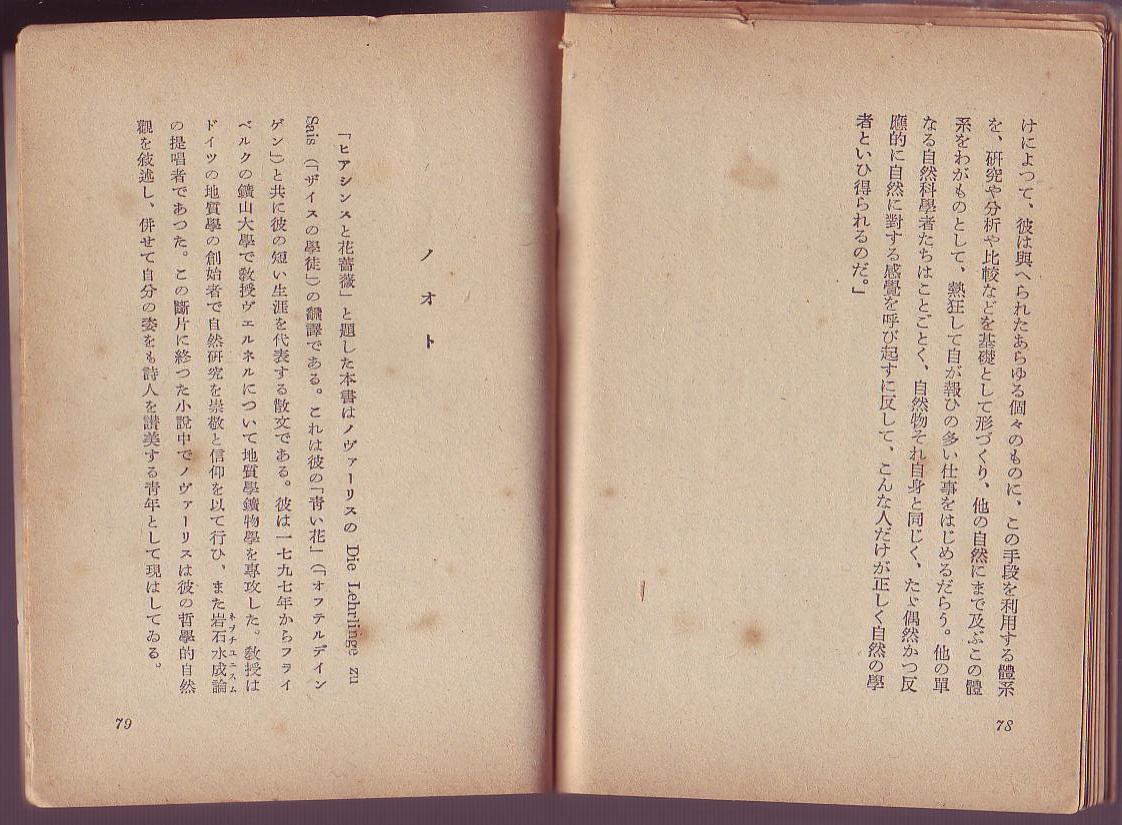 けによつて、彼は與へられたあらゆる個々のものに、この手段を利用する體系
を、研究や分析や比較などを基礎として形づくり、他の自然にまで及ぶこの體
系をわがものとして、熱狂して自が報ひの多い仕事をはじめるだらう。他の單
なる自然科學者たちはことごとく、自然物それ自身と同じく、たゞ偶然かつ反
應的に自然に對する感覺を呼び起すに反して、こんな人だけが正しく自然の學
者といひ得られるのだ。」
78
ノオト
「ヒアシンスと花薔薇」と題した本書はノヴァーリスの Die Lehrlinge zu
Sais（「ザイスの學徒」）の飜譯である。これは彼の「青い花」（「オフテルディン
ゲン」）と共に彼の短い生涯を代表する散文である。彼は一七九七年からフライ
ベルクの鑛山大學で教授ヴェルネルについて地質學鑛物學を專攻した。教授は
ドイツの地質學の創始者で自然研究を崇敬と信仰を以て行ひ、また岩石水成論
ネプチュニスム
の提唱者であつた。この斷片に終つた小說中でノヴァーリスは彼の哲學的自然
觀を敍述し、併せて自分の姿をも詩人を讃美する靑年として現はしてゐる。
79